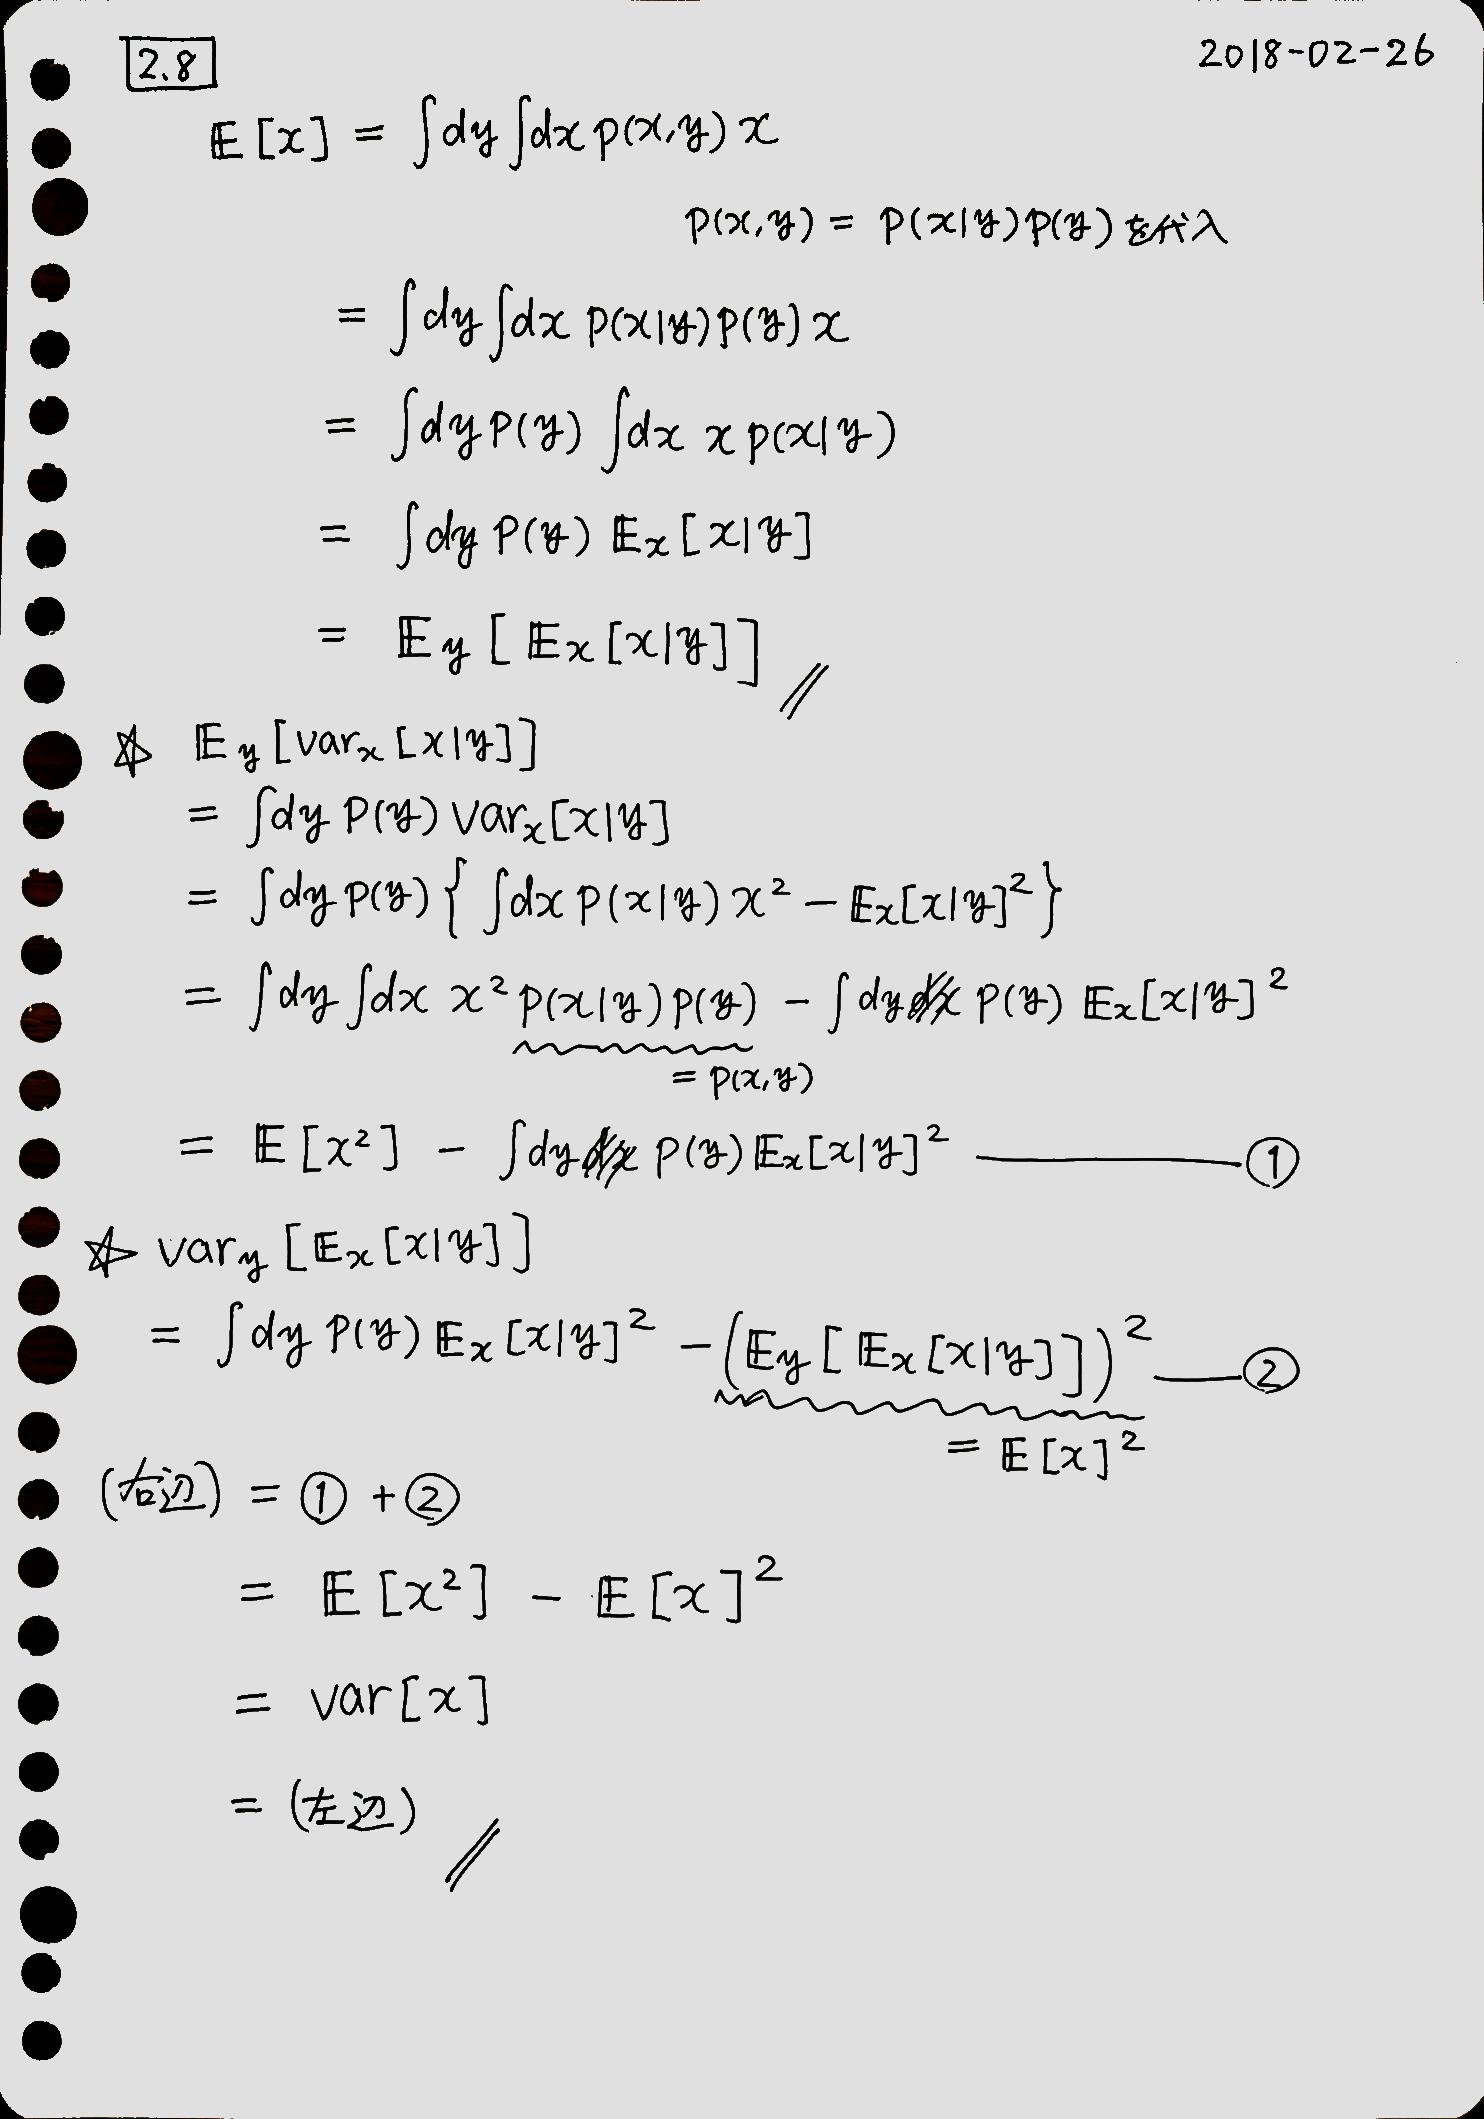 2.8 2018-02-26
𝔼[x] = ∫dy ∫dx p(x,y) x
p(x,y) = p(x|y)p(y) を代入
= ∫dy ∫dx p(x|y)p(y) x
= ∫dy p(y) ∫dx x p(x|y)
= ∫dy p(y) 𝔼x[x|y]
= 𝔼y[𝔼x[x|y]] //
☆ 𝔼y[varx[x|y]]
= ∫dy p(y) varx[x|y]
= ∫dy p(y) { ∫dx p(x|y) x² − 𝔼x[x|y]² }
= ∫dy ∫dx x² p(x|y) p(y) − ∫dy p(y) 𝔼x[x|y]²
= p(x,y)
= 𝔼[x²] − ∫dy p(y) 𝔼x[x|y]² ―――①
☆ vary[𝔼x[x|y]]
= ∫dy p(y) 𝔼x[x|y]² − (𝔼y[𝔼x[x|y]])² ―②
= 𝔼[x]²
(右辺) = ① + ②
= 𝔼[x²] − 𝔼[x]²
= var[x]
= (左辺) //